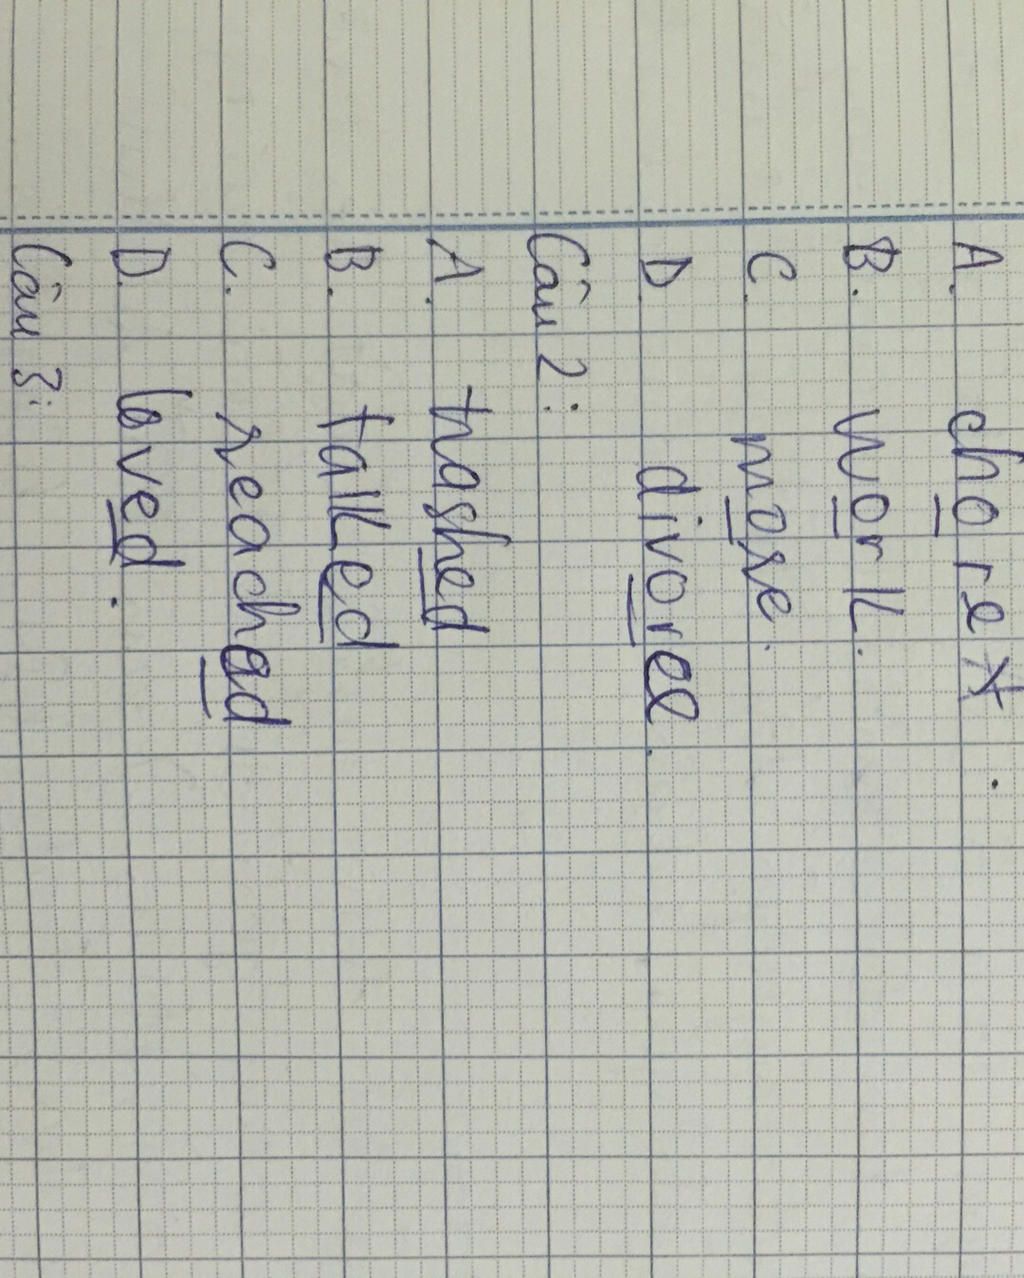 A.
B. work.
C. more.
D divorce.
Câu 2:
A. washed
B. talked
C. reached
D. loved.
Câu 3: